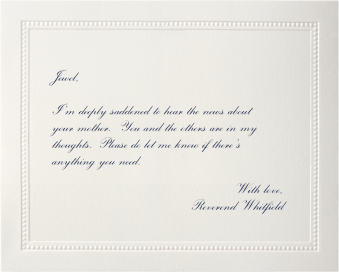 Jewel,
I'm deeply saddened to hear the news about
your mother. You and the others are in my
thoughts. Please do let me know if there's
anything you need.
With love,
Reverend Whitfield